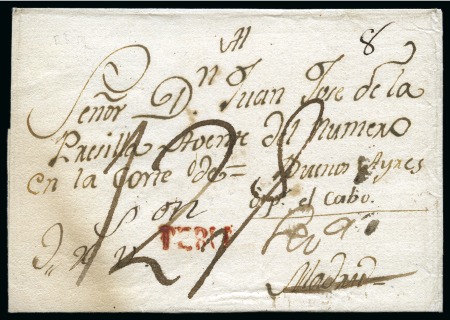 Al
8
Señor Dn Juan Jose de la
Presilla Agente del Numero
en la Corte de = Buenos Ayres
el Cabo.
PERU
128
Madrid